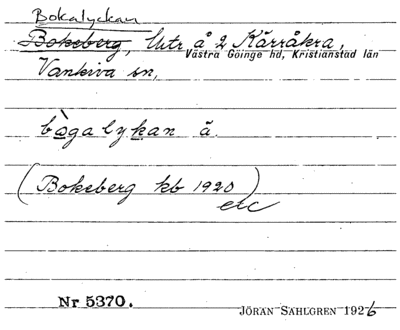 Bokalyckan
Bokeberg, Utr å 2 Kärråkra,
Västra Göinge hd, Kristianstad län
Vankiva sn,
bògalykan ä.
(Bokeberg kb 1920)
etc
Nr 5370. JÖRAN SAHLGREN 1926